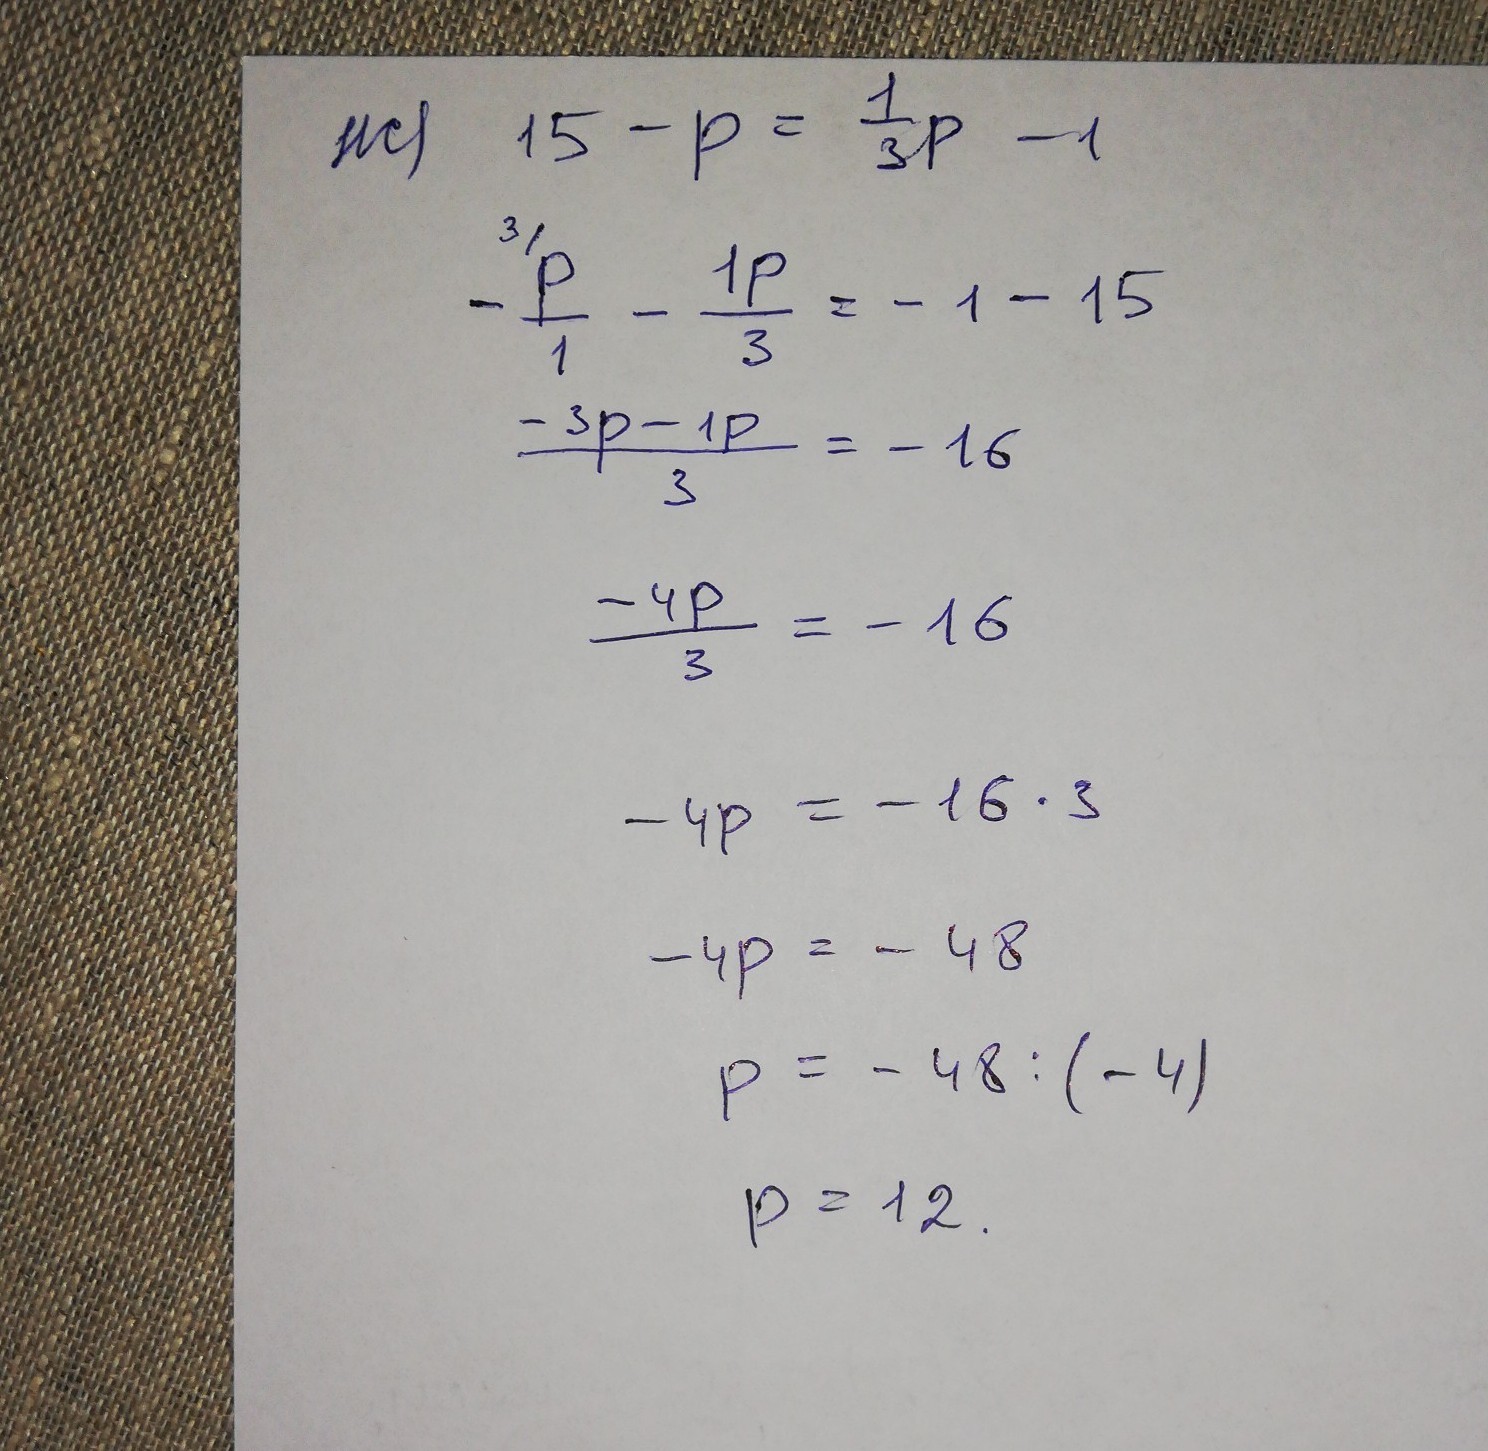 ж) 15 - p = 1/3 p - 1
- 3/ p/1 - 1p/3 = - 1 - 15
(-3p - 1p)/3 = - 16
-4p/3 = - 16
-4p = - 16 · 3
-4p = - 48
p = - 48 : (-4)
p = 12.